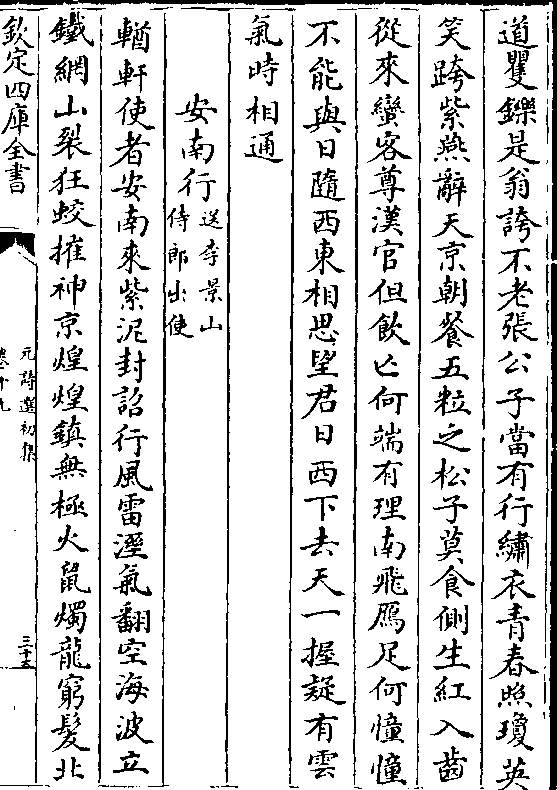 道矍鑠是翁誇不老張公子當有行繡衣青春照瓊英
笑跨紫燕辭天京朝餐五粒之松子莫食側生紅入齒
從來蠻客尊漢官但飲匕何端有理南飛雁足何憧憧
不能與日隨西東相思望君日西下去天一握疑有雲
氣時相通
安南行送李景山侍郎出使
輶軒使者安南來紫泥封詔行風雷溼氣翻空海波立
鐵網山裂狂蛟摧神京煌煌鎮無極火鼠燭龍窮髮北
欽定四庫全書
元詩選初集
卷十九
三十五